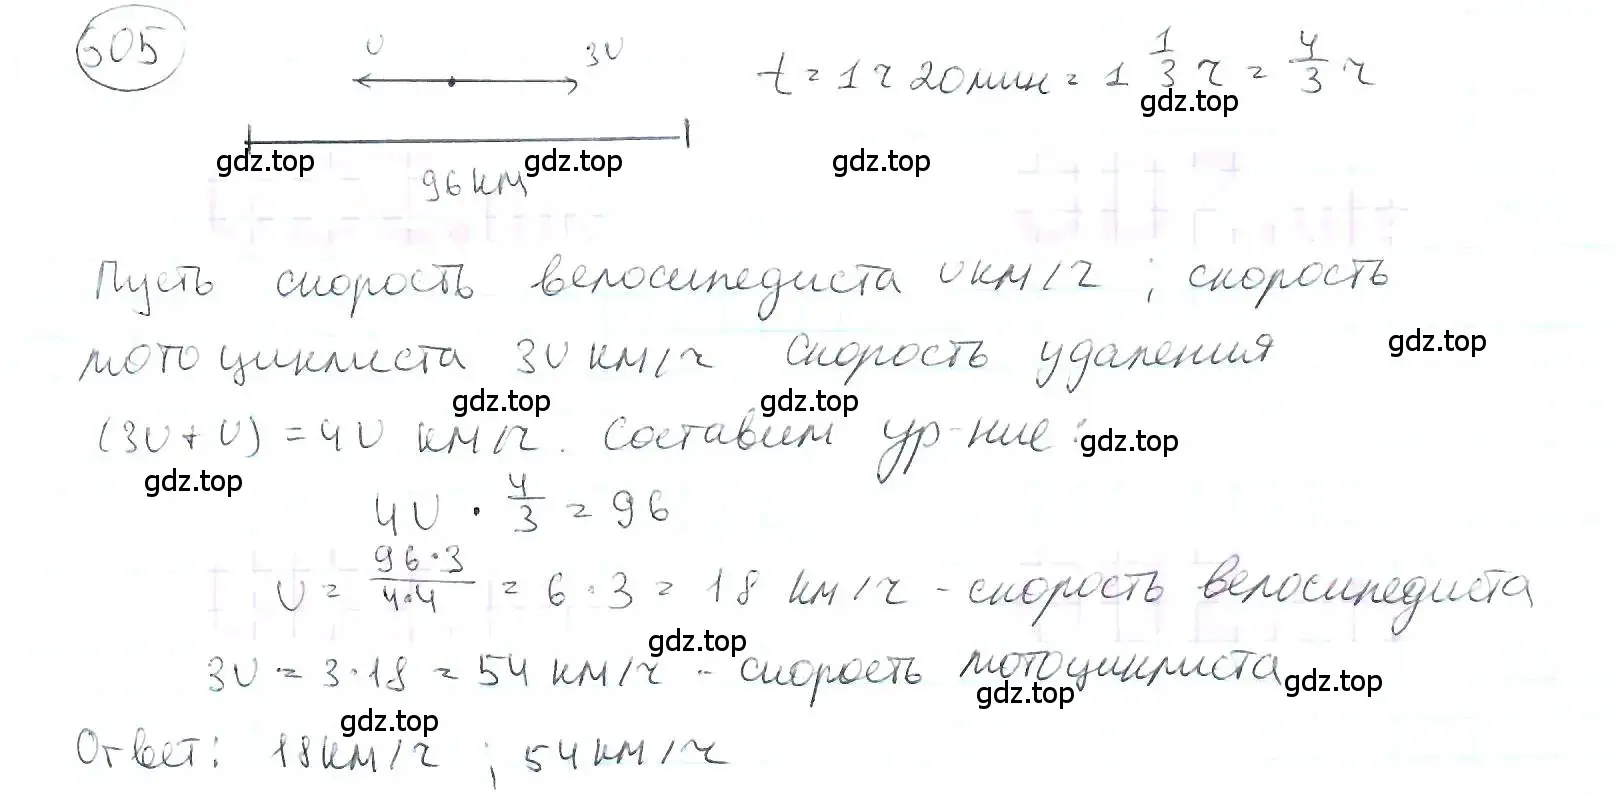 505
υ 3υ t = 1 ч 20 мин = 1 1/3 ч = 4/3 ч
gdz.top
gdz.top gdz.top gdz.top
96 км
Пусть скорость велосипедиста υ км/ч ; скорость
мотоциклиста 3υ км/ч Скорость удаления gdz.top
gdz.top gdz.top
(3υ + υ) = 4υ км/ч. Составим ур-ние : gdz.top
gdz.top
4υ · 4/3 = 96
υ = 96·3/4·4 = 6 · 3 = 18 км/ч - скорость велосипедиста
gdz.top
3υ = 3·18 = 54 км/ч - скорость мотоциклиста gdz.top
gdz.top
gdz.top
Ответ: 18 км/ч ; 54 км/ч